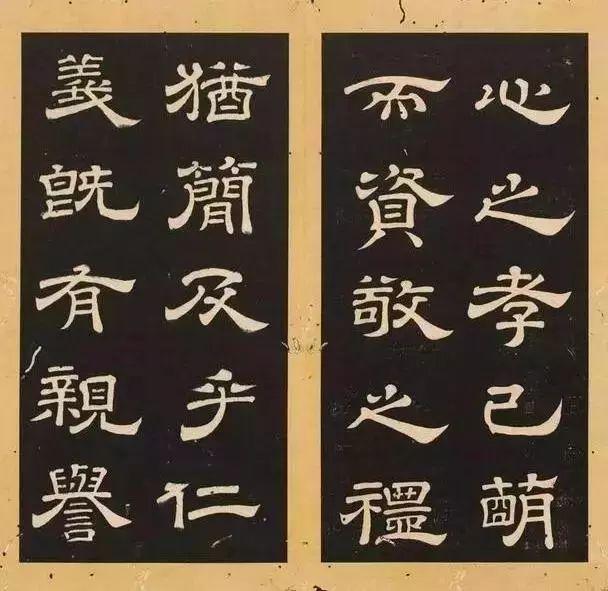 心之孝已萌
而資敬之禮
猶簡及乎仁
義旣有親譽